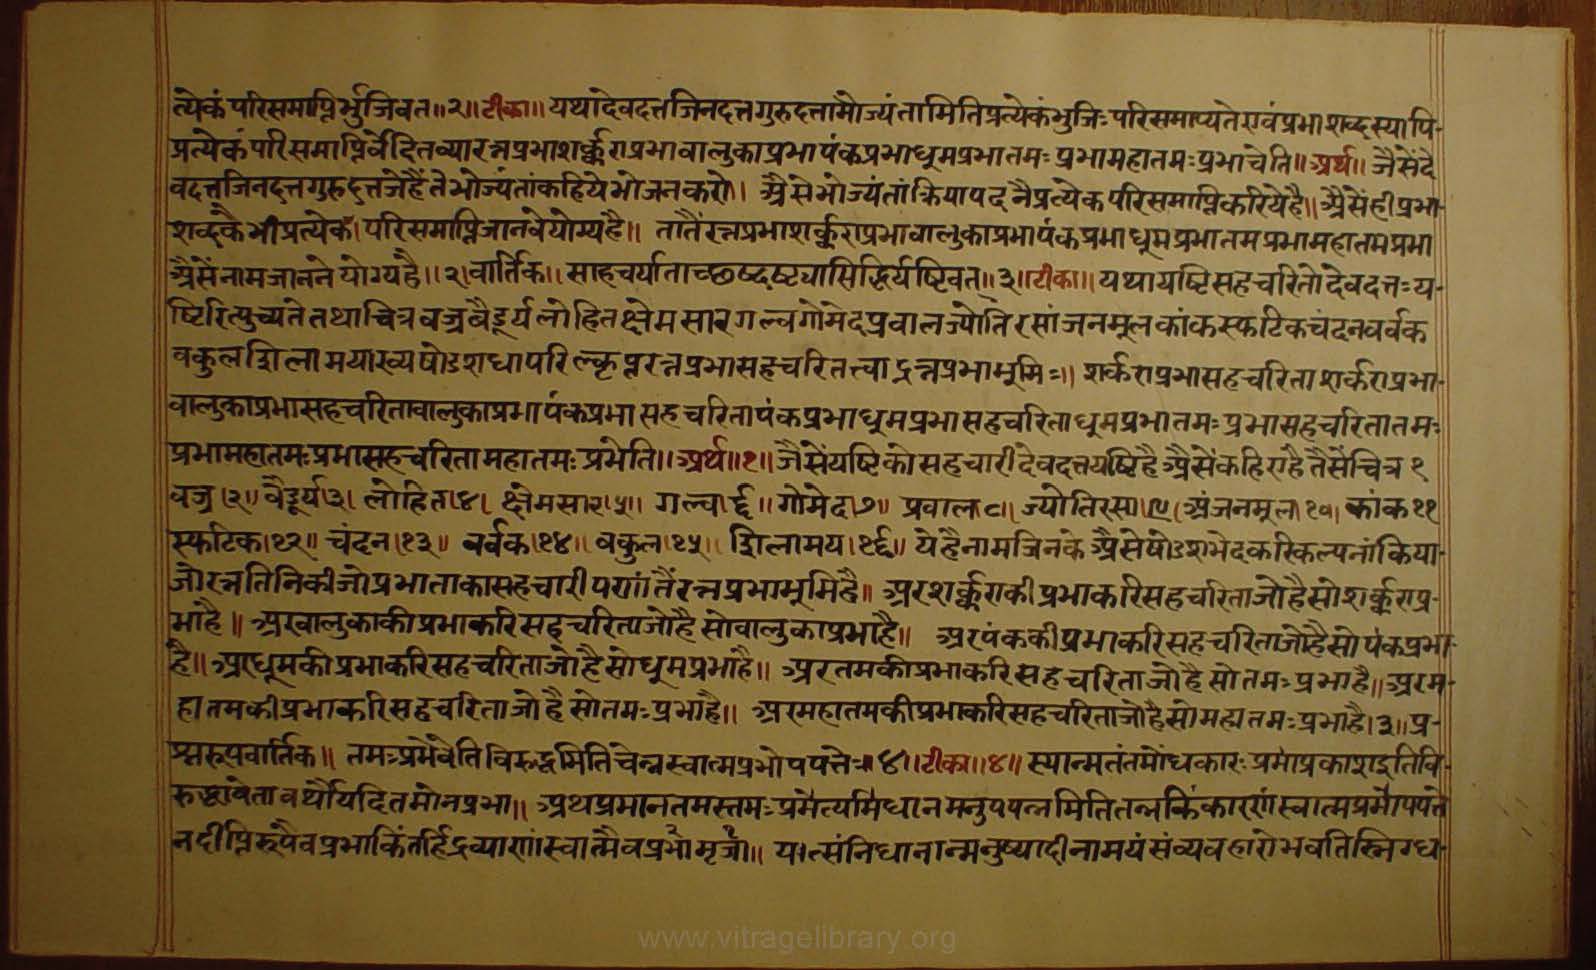 त्येकंपरिसमाप्तिर्भुजिवत॥२॥टीका॥यथादेवदत्तजिनदत्तगुरुदत्ताभोज्यंतामितिप्रत्येकंभुजिःपरिसमाप्यतेएवंप्रभाशब्दस्यापि-
प्रत्येकंपरिसमाप्तिर्वेदितव्यारत्नप्रभाशर्क्कराप्रभावालुकाप्रभापंकप्रभाधूमप्रभातमःप्रभामहातमःप्रभाचेति॥अर्थ॥जैसेंदे
वदत्तजिनदत्तगुरुदत्तजेहैंतेभोज्यंतांकहियेभोजनकरो।अैसेभोज्यंतांक्रियापदनैप्रत्येकपरिसमाप्तिकरियेहै॥अैसेंहीप्रभा-
शब्दकैभीप्रत्येक।परिसमाप्तिजानवेयोग्यहै॥तातैंरत्नप्रभाशर्क्कराप्रभावालुकाप्रभापंकप्रभाधूमप्रभातमप्रभामहातमप्रभा
अैसेंनामजाननेयोग्यहै॥२।वार्तिक॥साहचर्यात्ताच्छब्द्यसिद्धिर्यष्टिवत॥३॥टीका॥यथायष्टिसहचरितोदेवदत्तःय-
ष्टिरित्युच्यतेतथाचित्रवज्रवैडूर्यलोहितक्षेमसारगल्वगोमेदप्रवालज्योतिरसांजनमूलकांकस्फटिकचंदनवर्वक
वकुलशिलामयाख्यषोडशधापरिक्लृप्तरत्नप्रभासहचरितत्वाद्रत्नप्रभाभूमिः॥शर्कराप्रभासहचरिताशर्कराप्रभा-
वालुकाप्रभासहचरितावालुकाप्रभापंकप्रभासहचरितापंकप्रभाधूमप्रभासहचरिताधूमप्रभातमःप्रभासहचरितातमः
प्रभामहातमःप्रभासहचरितामहातमःप्रभेति॥अर्थ॥१॥जैसेंयष्टिकोसहचारीदेवदत्तयष्टिहैअैसेंकहिएहैतैसेंचित्र१
वज्र।२॥वैडूर्य३।लोहित।४।क्षेमसार।५॥गल्व।६॥गोमेद।७॥प्रवाल।८॥ज्योतिरसा।९।अंजनमूल।१०।कांक११
स्फटिक।१२॥चंदन।१३॥वर्वक।१४॥वकुल।१५॥शिलामय।१६॥येहैनामजिनकेअैसेषोडशभेदकरिकल्पनांकिया-
जोरत्नतिनिकीजोप्रभाताकासहचारीपणांतैंरत्नप्रभाभूमिहै॥अरशर्क्कराकीप्रभाकरिसहचरिताजोहैसोशर्क्कराप्र-
भाहै॥अरवालुकाकीप्रभाकरिसहचरिताजोहैसोवालुकाप्रभाहै॥अरपंककीप्रभाकरिसहचरिताजोहैसोपंकप्रभा
है॥अरधूमकीप्रभाकरिसहचरिताजोहैसोधूमप्रभाहै॥अरतमकीप्रभाकरिसहचरिताजोहैसोतमःप्रभाहै॥अरम-
हातमकीप्रभाकरिसहचरिताजोहैसोतमःप्रभाहै॥अरमहातमकीप्रभाकरिसहचरिताजोहैसोमहातमःप्रभाहै।३॥प्र-
श्नरूपवार्तिक॥तमःप्रभेवेतिविरुद्धमितिचेन्नस्वात्मप्रभोपपत्तेः॥४॥टीका॥४॥स्यान्मतंतमोंधकारःप्रभाप्रकाशइतिवि-
रुद्धावेतावर्थौयदितमोनप्रभा॥अथप्रभानतमस्तमःप्रभेत्यभिधानमनुपपन्नमितितन्नकिंकारणंस्वात्मप्रभोपपत्ते
नदीप्तिरूपैवप्रभाकिंतर्हिद्रव्याणांस्वात्मैवप्रभामृजा॥यत्संनिधानान्मनुष्यादीनामयंसंव्यवहारोभवतिस्निग्ध-
www.vitragelibrary.org